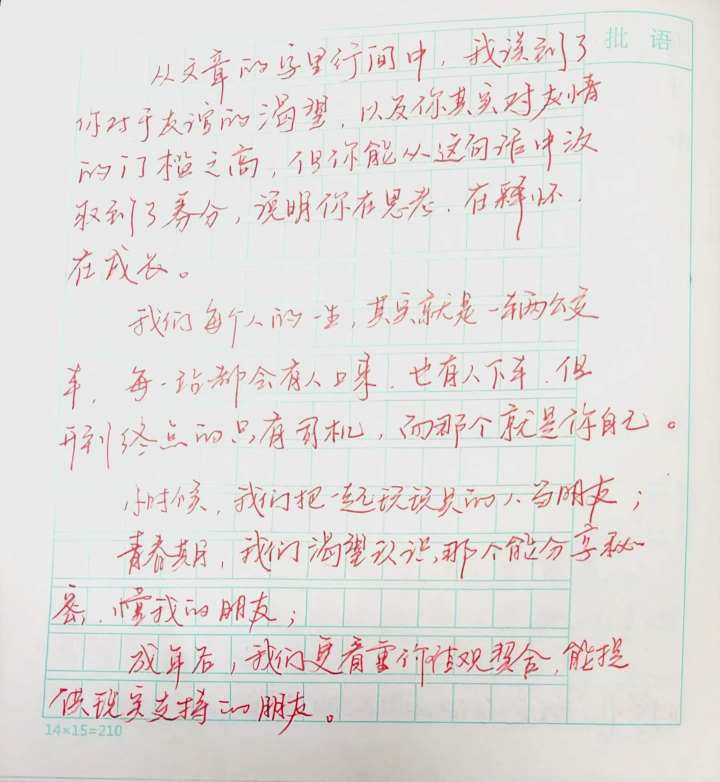 批 语
从文章的字里行间中，我读到了
你对于友谊的渴望，以及你其实对友情
的门槛之高，但你能从这句话中汲
取到了养分，说明你在思考、在释怀、
在成长。
我们每个人的一生，其实就是一辆公交
车，每一站都会有人上来，也有人下车，但
开到终点的只有司机，而那个就是你自己。
小时候，我们把一起玩玩具的人当朋友；
青春期，我们渴望认识那个能分享秘
密、懂我的朋友；
成年后，我们更看重价值观契合、能提
供现实支持的朋友。
14×15=210